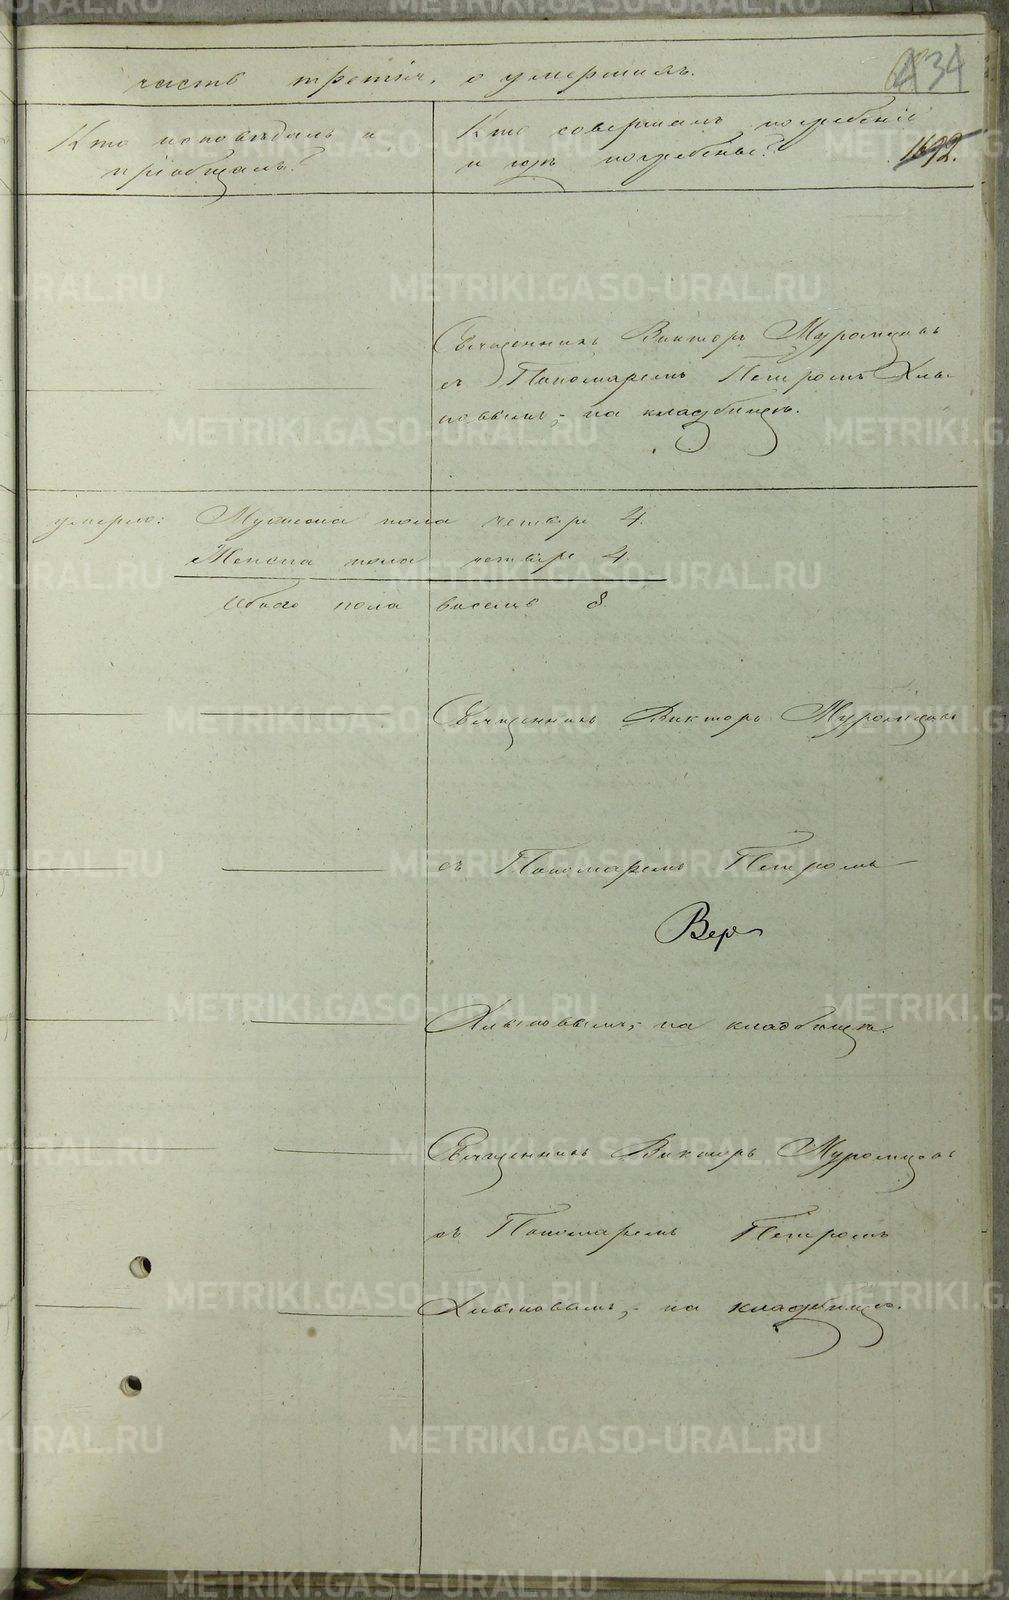 часть третія, о умершихъ.
434
Кто исповѣдалъ и
пріобщалъ?
Кто совершалъ погребеніе
и гдѣ погребены?
1692.
Священникъ Викторъ Муромцовъ
съ Пономаремъ Петромъ Хлы-
новымъ, на кладбищѣ.
умерло: Мужеска пола четыре 4.
Женска пола четыре 4.
Обоего пола восемь 8.
Священникъ Викторъ Муромцовъ
съ Пономаремъ Петромъ
Вер
Хлыновымъ, на кладбищѣ.
Священникъ Викторъ Муромцовъ
съ Пономаремъ Петромъ
Хлыновымъ, на кладбищѣ.
METRIKI.GASO-URAL.RU